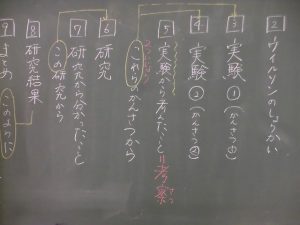 2 ウイルソンのしょうかい
3 実験①(かんさつ①)
4 実験②(かんさつ②)
5 実験から考えたこと=考察
これらのかんさつから
6 研究
7 研究から分かったこと
この研究から
8 研究結果
9 まとめ
このように